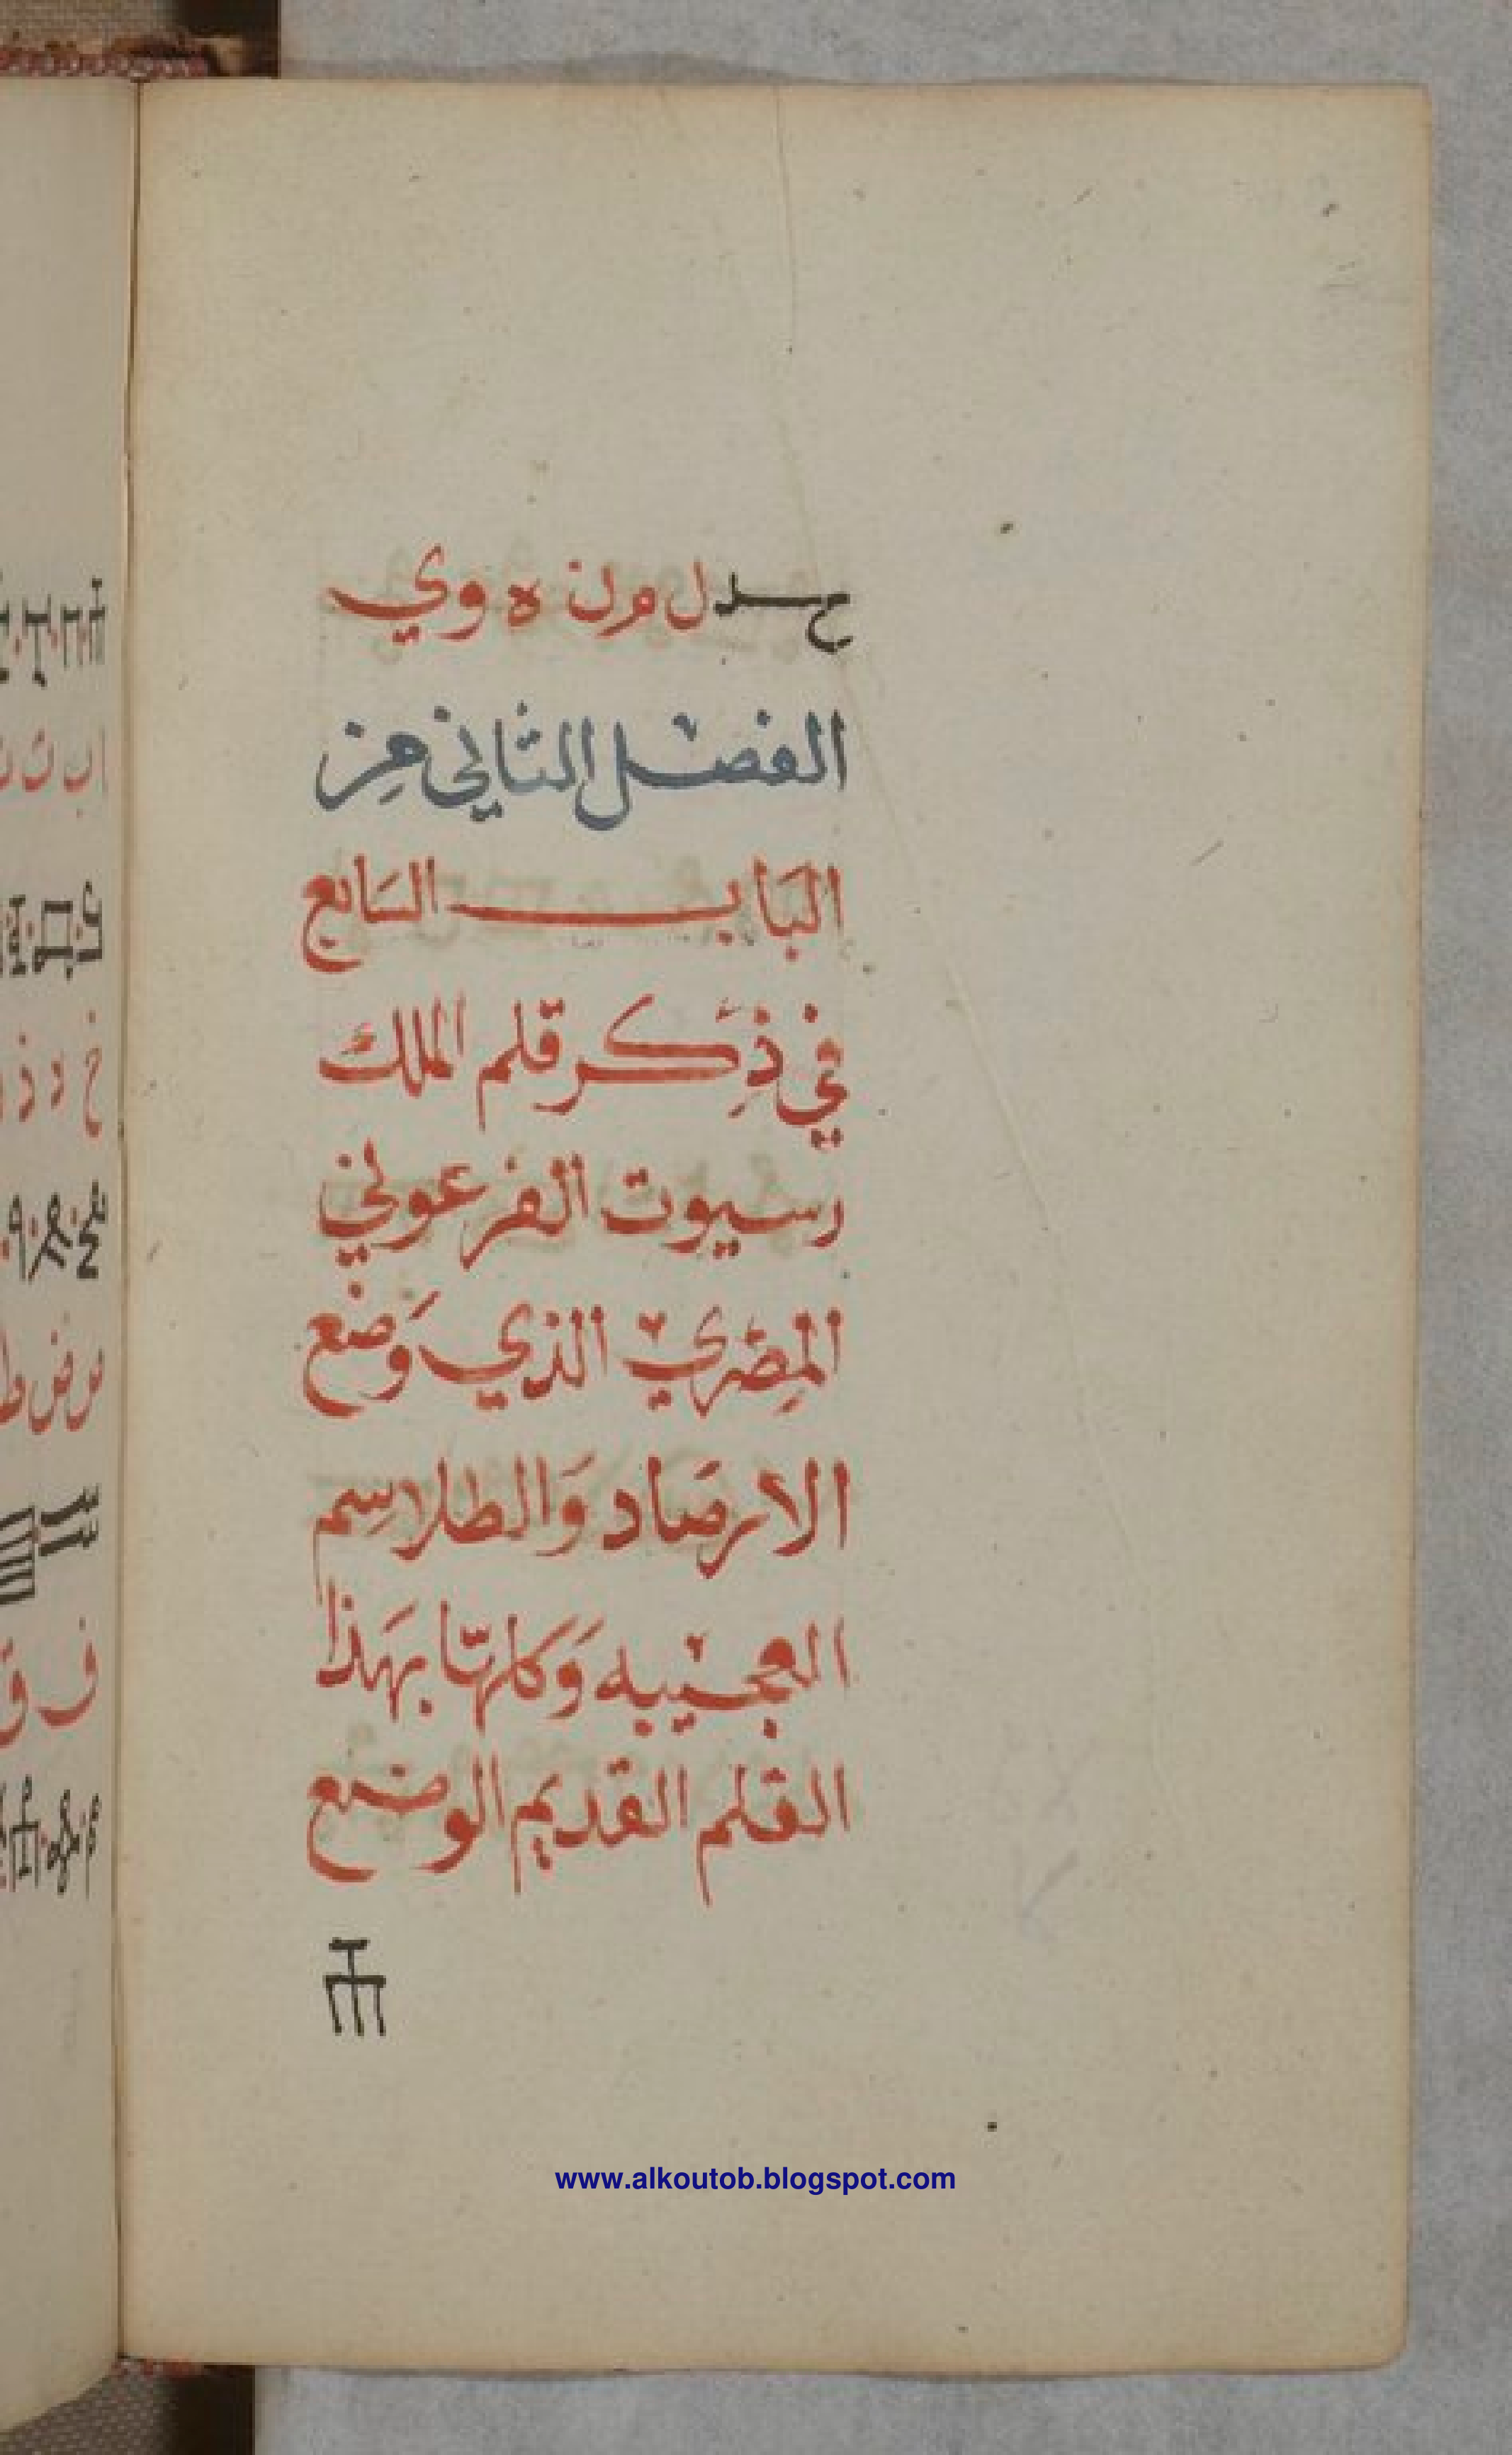 ل م ن ه و ي
الفصل الثاني من
البَاب السَابع
في ذِكر قلم الملك
رسيوت الفرعوني
المِصري الذي وَضع
الارصَاد وَالطلاسِم
العجيبه وَكاهنًا بهَذا
القلم القديم الوضع
www.alkoutob.blogspot.com